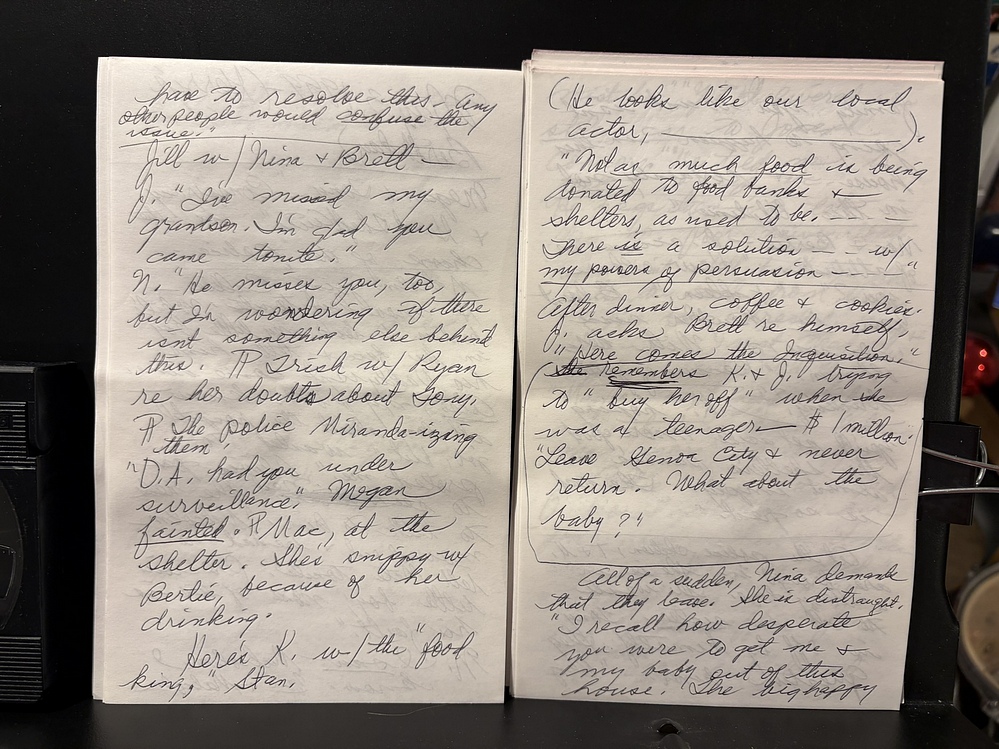 have to resolve this - any
other people would confuse the
issue."
Jill w/ Nina & Brett —
J. "I've missed my
grandson. I'm glad you
came tonite."
N. "He misses you, too,
but I'm wondering if there
isn't something else behind
this. ¶ Trish w/ Ryan
re her doubts about Tony.
¶ The police Miranda-izing
them
"D.A. had you under
surveillance." Megan
fainted. ¶ Mac, at the
shelter. She's snippy w/
Bertie, because of her
drinking.
Here's K. w/ the "food
king," Stan.
(He looks like our local
actor, __________).
"Not as much food is being
donated to food banks &
shelters, as used to be. — —
There is a solution — — w/
my powers of persuasion — — "
After dinner, coffee & cookies.
J. acks Brett re himself.
"Here comes the Inquisition."
She remembers K. & J. trying
to "buy her off" when she
was a teenager — $ 1 million.
"Leave Genoa City & never
return. What about the
baby?"
All of a sudden, Nina demands
that they leave. She is distraught.
"I recall how desperate
you were to get me &
my baby out of this
house. The big happy